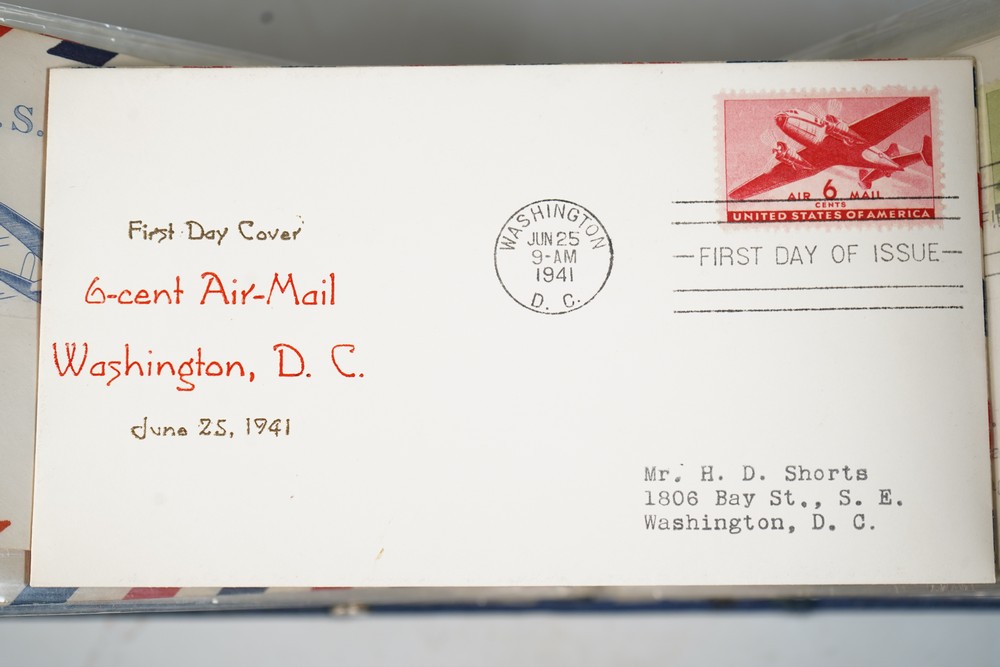 S.
First Day Cover
6-cent Air-Mail
Washington, D. C.
June 25, 1941
WASHINGTON
JUN 25
9-AM
1941
D. C.
AIR 6 MAIL
CENTS
UNITED STATES OF AMERICA
FIRST DAY OF ISSUE
Mr. H. D. Shorts
1806 Bay St., S. E.
Washington, D. C.